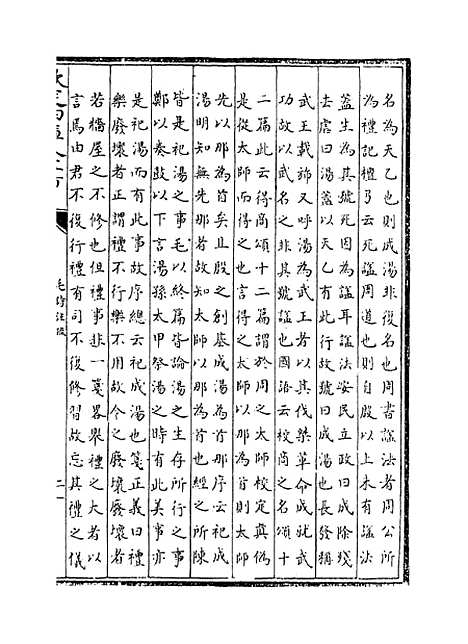 名為天乙也則成湯非復名也周書諡法者周公所
為禮記檀弓云死諡周道也則自殷以上未有諡法
蓋生為其號死因為諡耳諡法安民立政曰成除殘
去虐曰湯蓋以天乙有此行故號曰成湯也長發稱
武王載斾又呼湯為武王者以其伐桀革命成就武
功故以武名之非其號諡也國語云校商之名頌十
二篇此云得商頌十二篇謂於周之太師校定真偽
是從太師而得之也言得之太師以那為首則太師
先以那為首矣且殷之創基成湯為首那序云祀成
湯明知無先那者故知太師以那為首也經之所陳
皆是祀湯之事毛以終篇皆論湯之生存所行之事
鄭以奏鼓以下言湯孫太甲祭湯之時有此美事亦
是祀湯而有此事故序總云祀成湯也箋正義曰禮
樂廢壞者正謂禮不行樂不用故令之廢壞廢壞者
若牆屋之不修也但禮事非一箋畧舉禮之大者以
言焉由君不復行禮有司不復修習故忘其禮之儀
欽定四庫全書
毛詩注疏